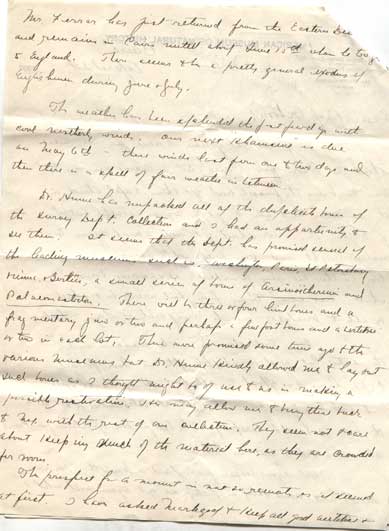 Mr. Ferrar has just returned from the Eastern Des
and remains in Cairo until about June 15th when he too goes
to England. There seems to be a pretty general exodus of
Englishmen during June & July.
The weather has been splendid the past few days with
cool northerly winds. Our next Khamsine is due
on May 6th - these winds last from one to two days and
then there is a spell of fair weather in between.
Dr. Hume has unpacked all of the duplicate bones of
the Survey Dept. Collection and I had an opportunity to
see them. It seems that the Dept. has promised several of
the leading museums such as Washington, Paris, St Petersburg
Vienna & Berlin, a small series of bones of Arsinoitherium and
Palaeomastodon. There will be three or four limb bones and a
fragmentary jaw or two and perhaps a few foot bones and a vertebrae
or two in each lot. These were promised some time ago to the
various Museums but Dr. Hume kindly allowed me to lay out
such bones as I thought might be of use to us in making a
possible restoration. He may allow me to bring these back
to N.Y. with the rest of our collection. They seem not to care
about keeping much of the material here, as they are crowded
for room.
The prospect for a mount is not so remote as it seemed
at first. I have asked Markgraf to keep all good vertebrae &